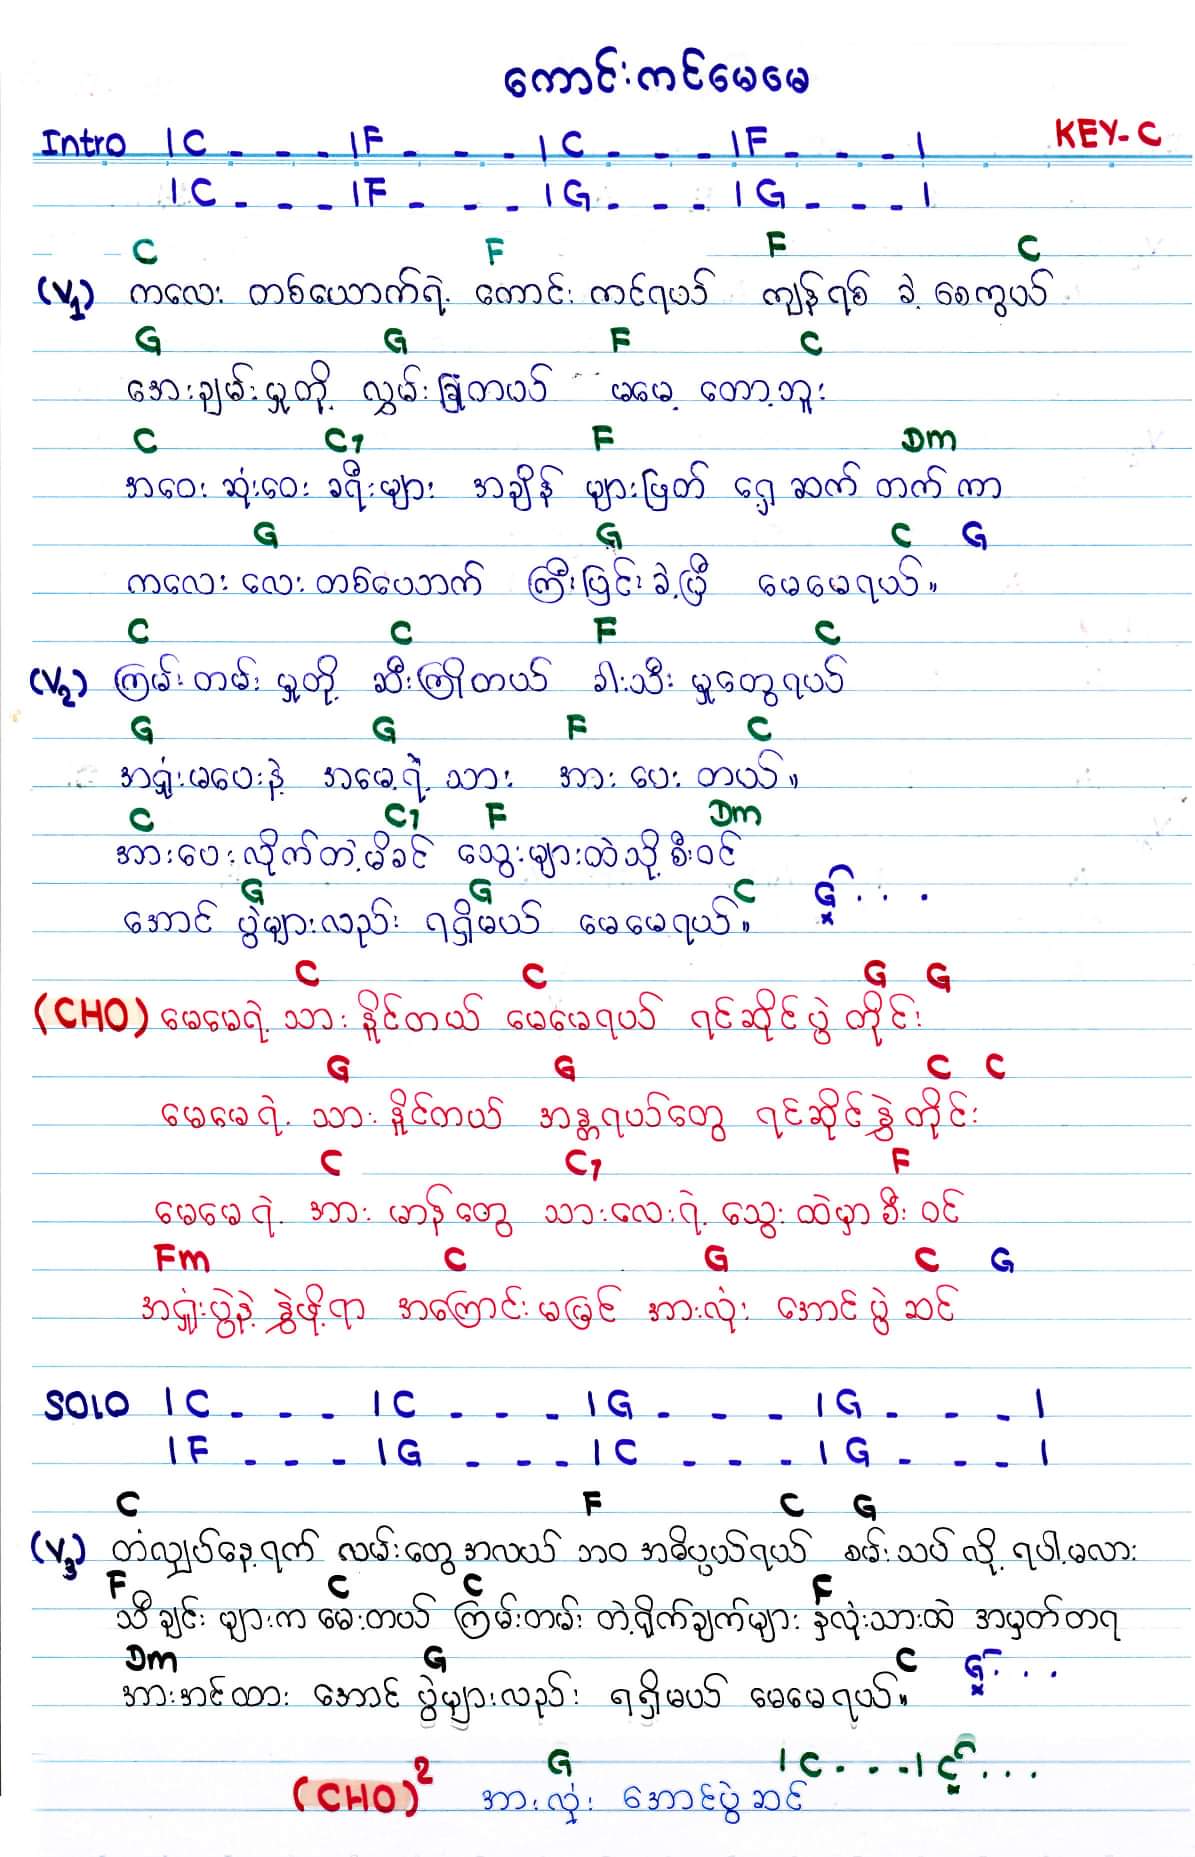 ကောင်းကင်မေမေ
KEY-C
Intro |C - - - |F - - - |C - - - |F - - - |
|C - - - |F - - - |G - - - |G - - - |
C F F C
(V1) ကလေး တစ်ယောက်ရဲ့ ကောင်းကင်ရယ် ကျန်ရစ်ခဲ့စေကွယ်
G G F C
အေးချမ်းမှုတို့ လွှမ်းခြုံတယ် မမေ့တော့ဘူး
C C7 F Dm
အဝေးဆုံးဝေး ခရီးများ အချိန်များဖြတ် ရှေ့ဆက်တက်ကာ
G G C G
ကလေးလေးတစ်ယောက် ကြီးပြင်းခဲ့ပြီ မေမေရယ်။
C C F C
(V2) ကြမ်းတမ်းမှုတို့ ဆီးကြိုတယ် ခါးသီးမှုတွေရယ်
G G F C
အရှုံးမပေးနဲ့ အမေ့ရဲ့သား အားပေးတယ်။
C C7 F Dm
အားပေးလိုက်တဲ့မိခင် သွေးများထဲသို့စီးဝင်
G G C G...
အောင်ပွဲများလည်း ရရှိမယ် မေမေရယ်။
C C G G
(CHO) မေမေရဲ့သား နိူင်တယ် မေမေရယ် ရင်ဆိုင်ပွဲတိုင်း
G G C C
မေမေရဲ့သား နိူင်တယ် အန္တရယ်တွေ ရင်ဆိုင်နွှဲတိုင်း
C C7 F
မေမေရဲ့ အားမာန်တွေ သားလေးရဲ့သွေးထဲမှာစီးဝင်
Fm C G C G
အရှုံးပွဲနဲ့နွှဲဖို့ရာ အကြောင်းမမြင် အားလုံး အောင်ပွဲဆင်
SOLO |C - - - |C - - - |G - - - |G - - - |
|F - - - |G - - - |C - - - |G - - - |
C F C G
(V3) တံလျှပ်နေ့ရက် လမ်းတွေအလယ် ဘဝအဓိပ္ပယ်ရယ် စမ်းသပ်လို့ရပါ့မလား
F C C F
သီချင်းများက မေးတယ် ကြမ်းတမ်းတဲ့ရိုက်ချက်များ နှလုံးသားထဲ အမှတ်တရ
Dm G C G...
အားအင်ထား အောင်ပွဲများလည်း ရရှိမယ် မေမေရယ်။
G |C - - - |C...
(CHO)2 အားလုံး အောင်ပွဲဆင်